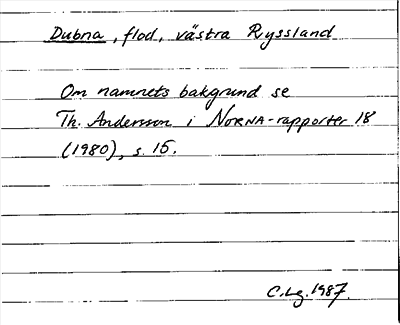 Dubna, flod, västra Ryssland
Om namnets bakgrund se
Th. Andersson i NORNA-rapporter 18
(1980), s. 15.
C.Lg. 1987.